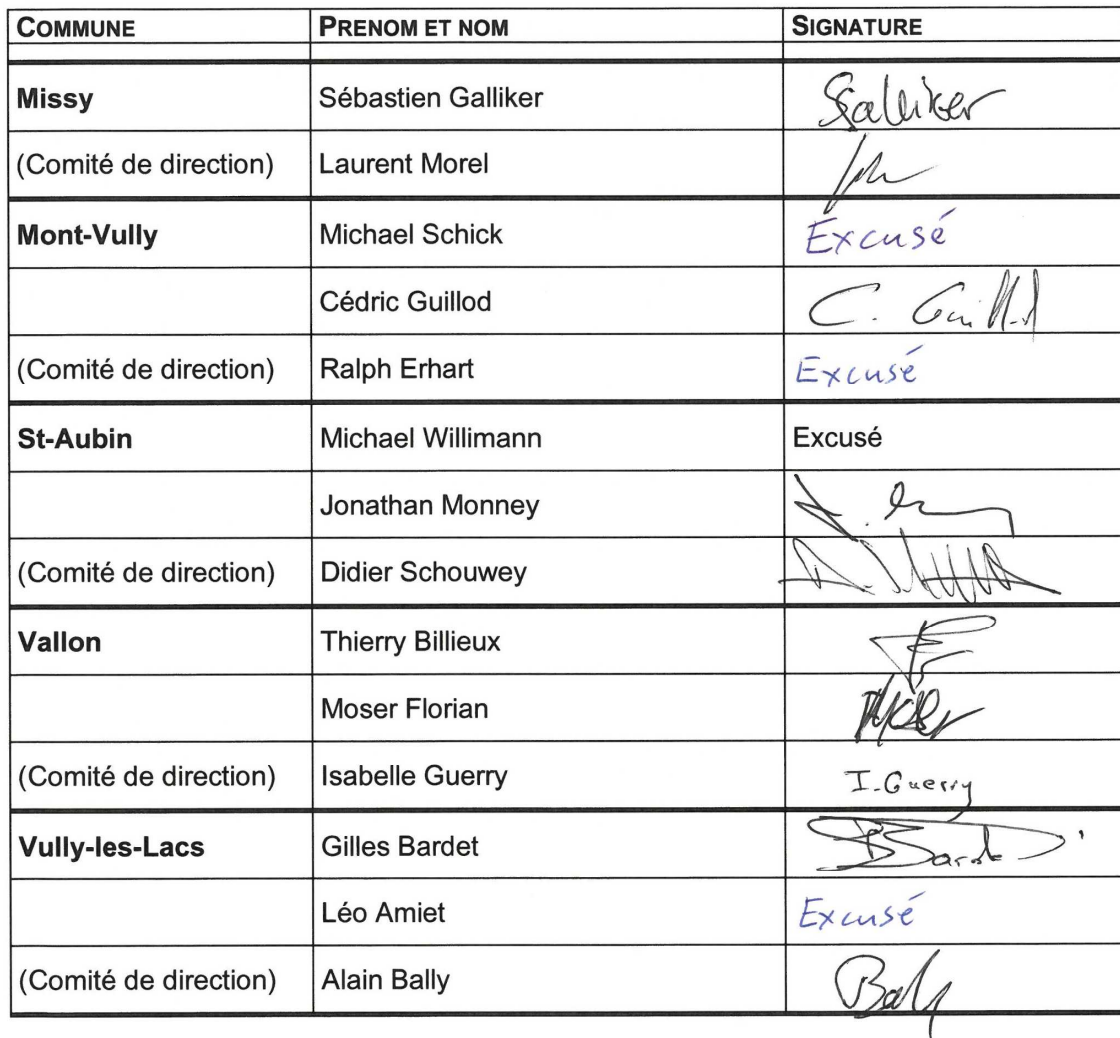 COMMUNE PRENOM ET NOM SIGNATURE
Missy Sébastien Galliker SGalliker
(Comité de direction) Laurent Morel
Mont-Vully Michael Schick Excusé
Cédric Guillod C. Guillod
(Comité de direction) Ralph Erhart Excusé
St-Aubin Michael Willimann Excusé
Jonathan Monney
(Comité de direction) Didier Schouwey
Vallon Thierry Billieux
Moser Florian Moser
(Comité de direction) Isabelle Guerry I. Guerry
Vully-les-Lacs Gilles Bardet Bardet
Léo Amiet Excusé
(Comité de direction) Alain Bally Bally